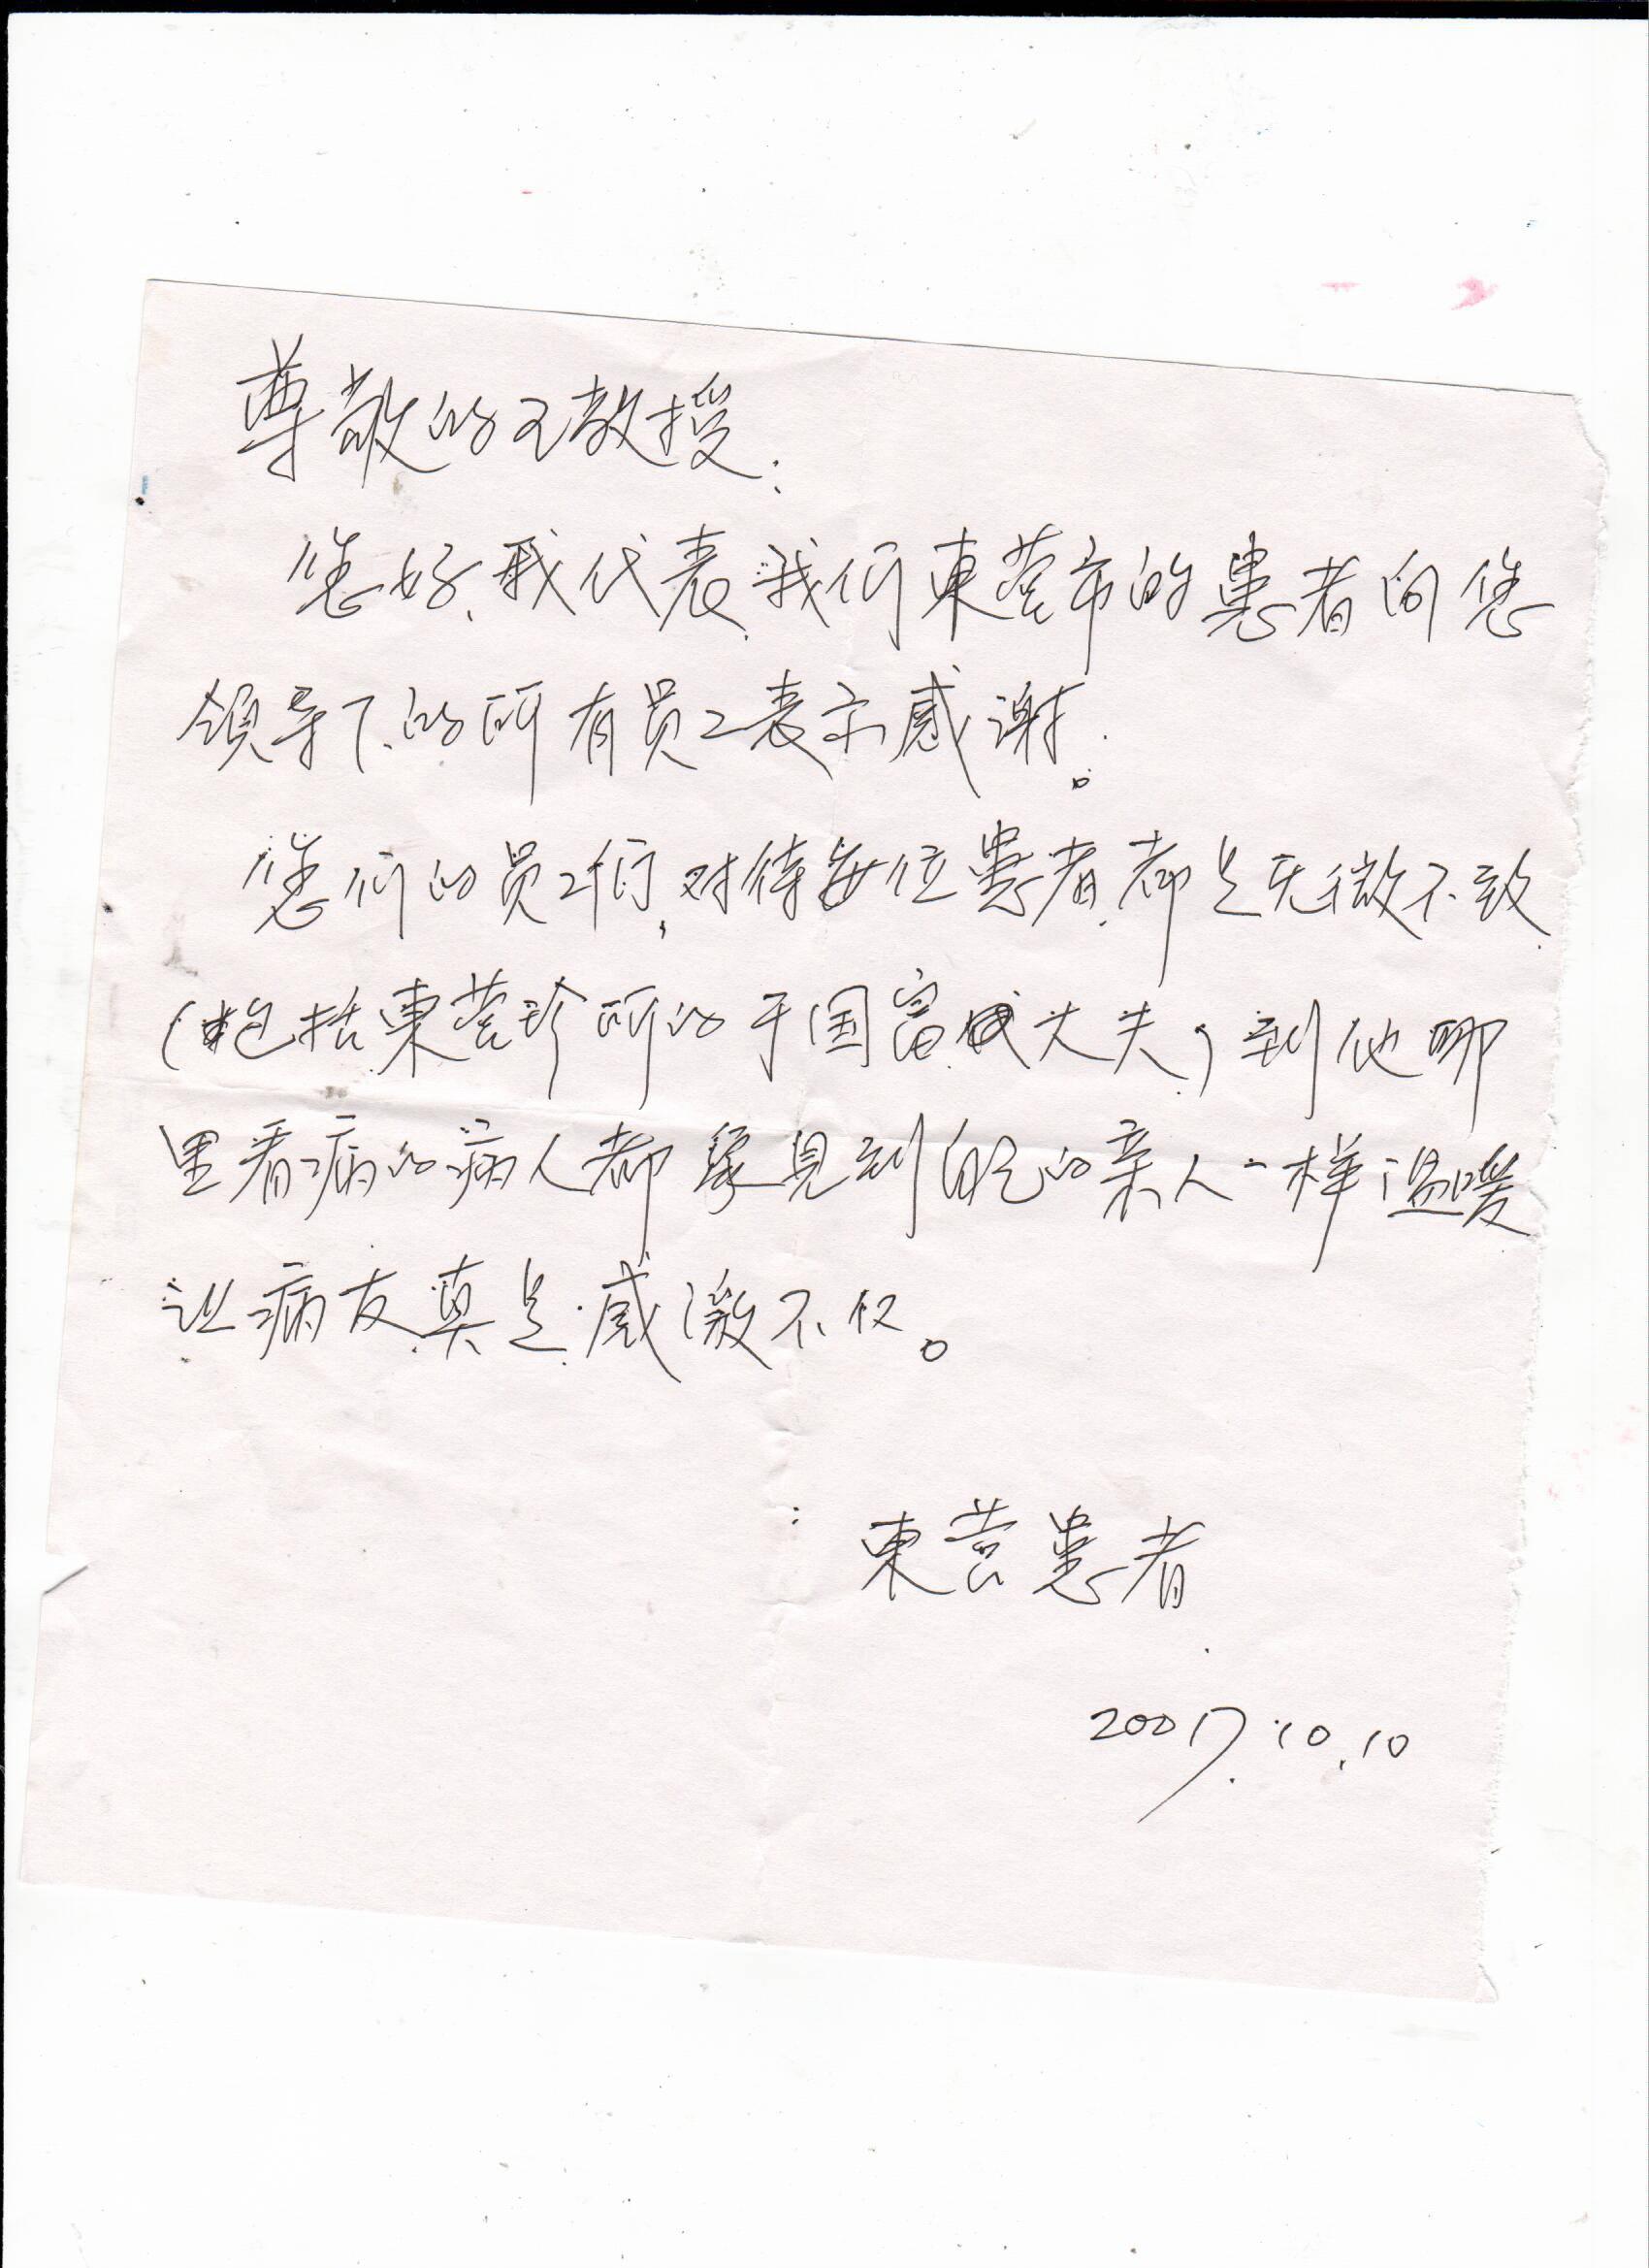 尊敬的王教授:
您好、我代表我们東营市的患者向您
领导下的所有员工表示感谢。
您们的员工们,对待每位患者都是无微不致
(包括東营珍所的于国富大夫)到他哪
里看病的病人都象見到自己的亲人一样温暖
让病友真是感激不仅。
東营患者
2007.10.10